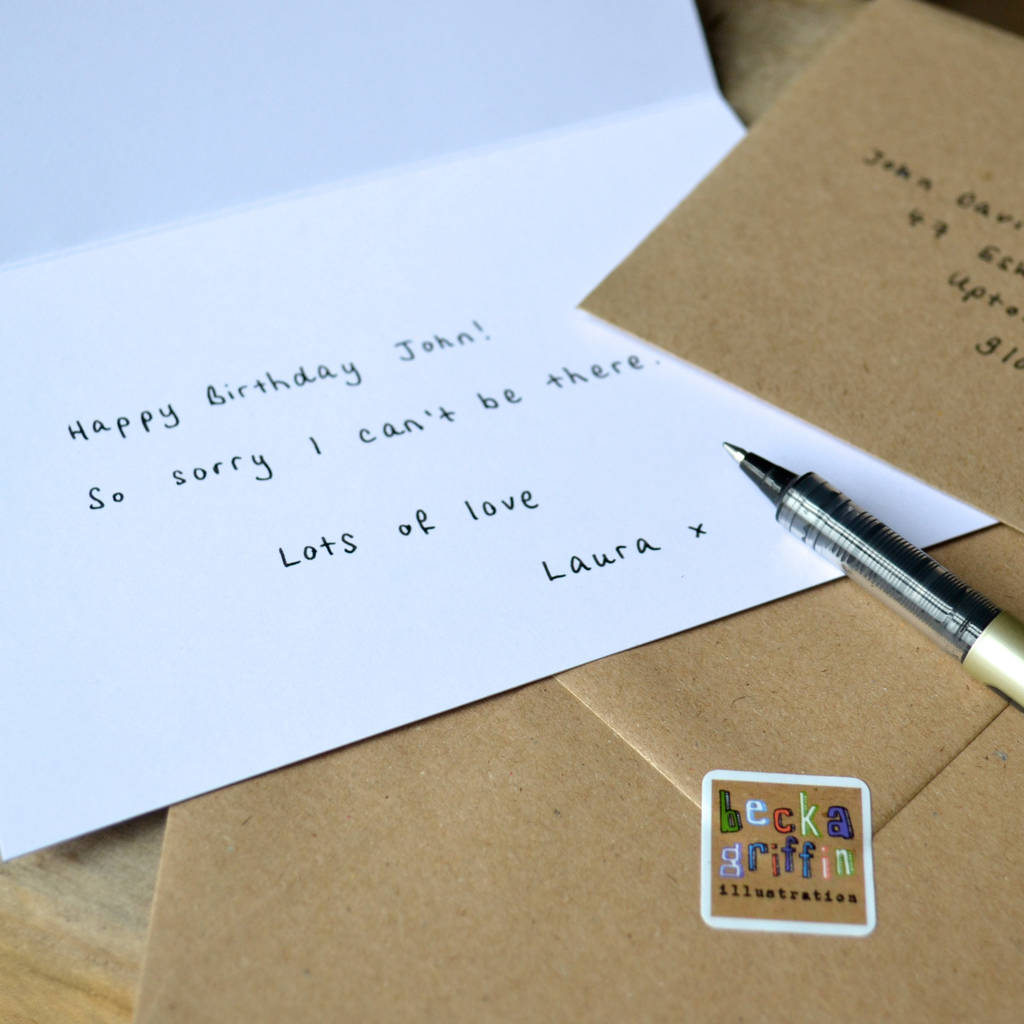 Happy Birthday John!
So sorry I can't be there.
Lots of love
Laura x
John
47
becka
griffin
illustration